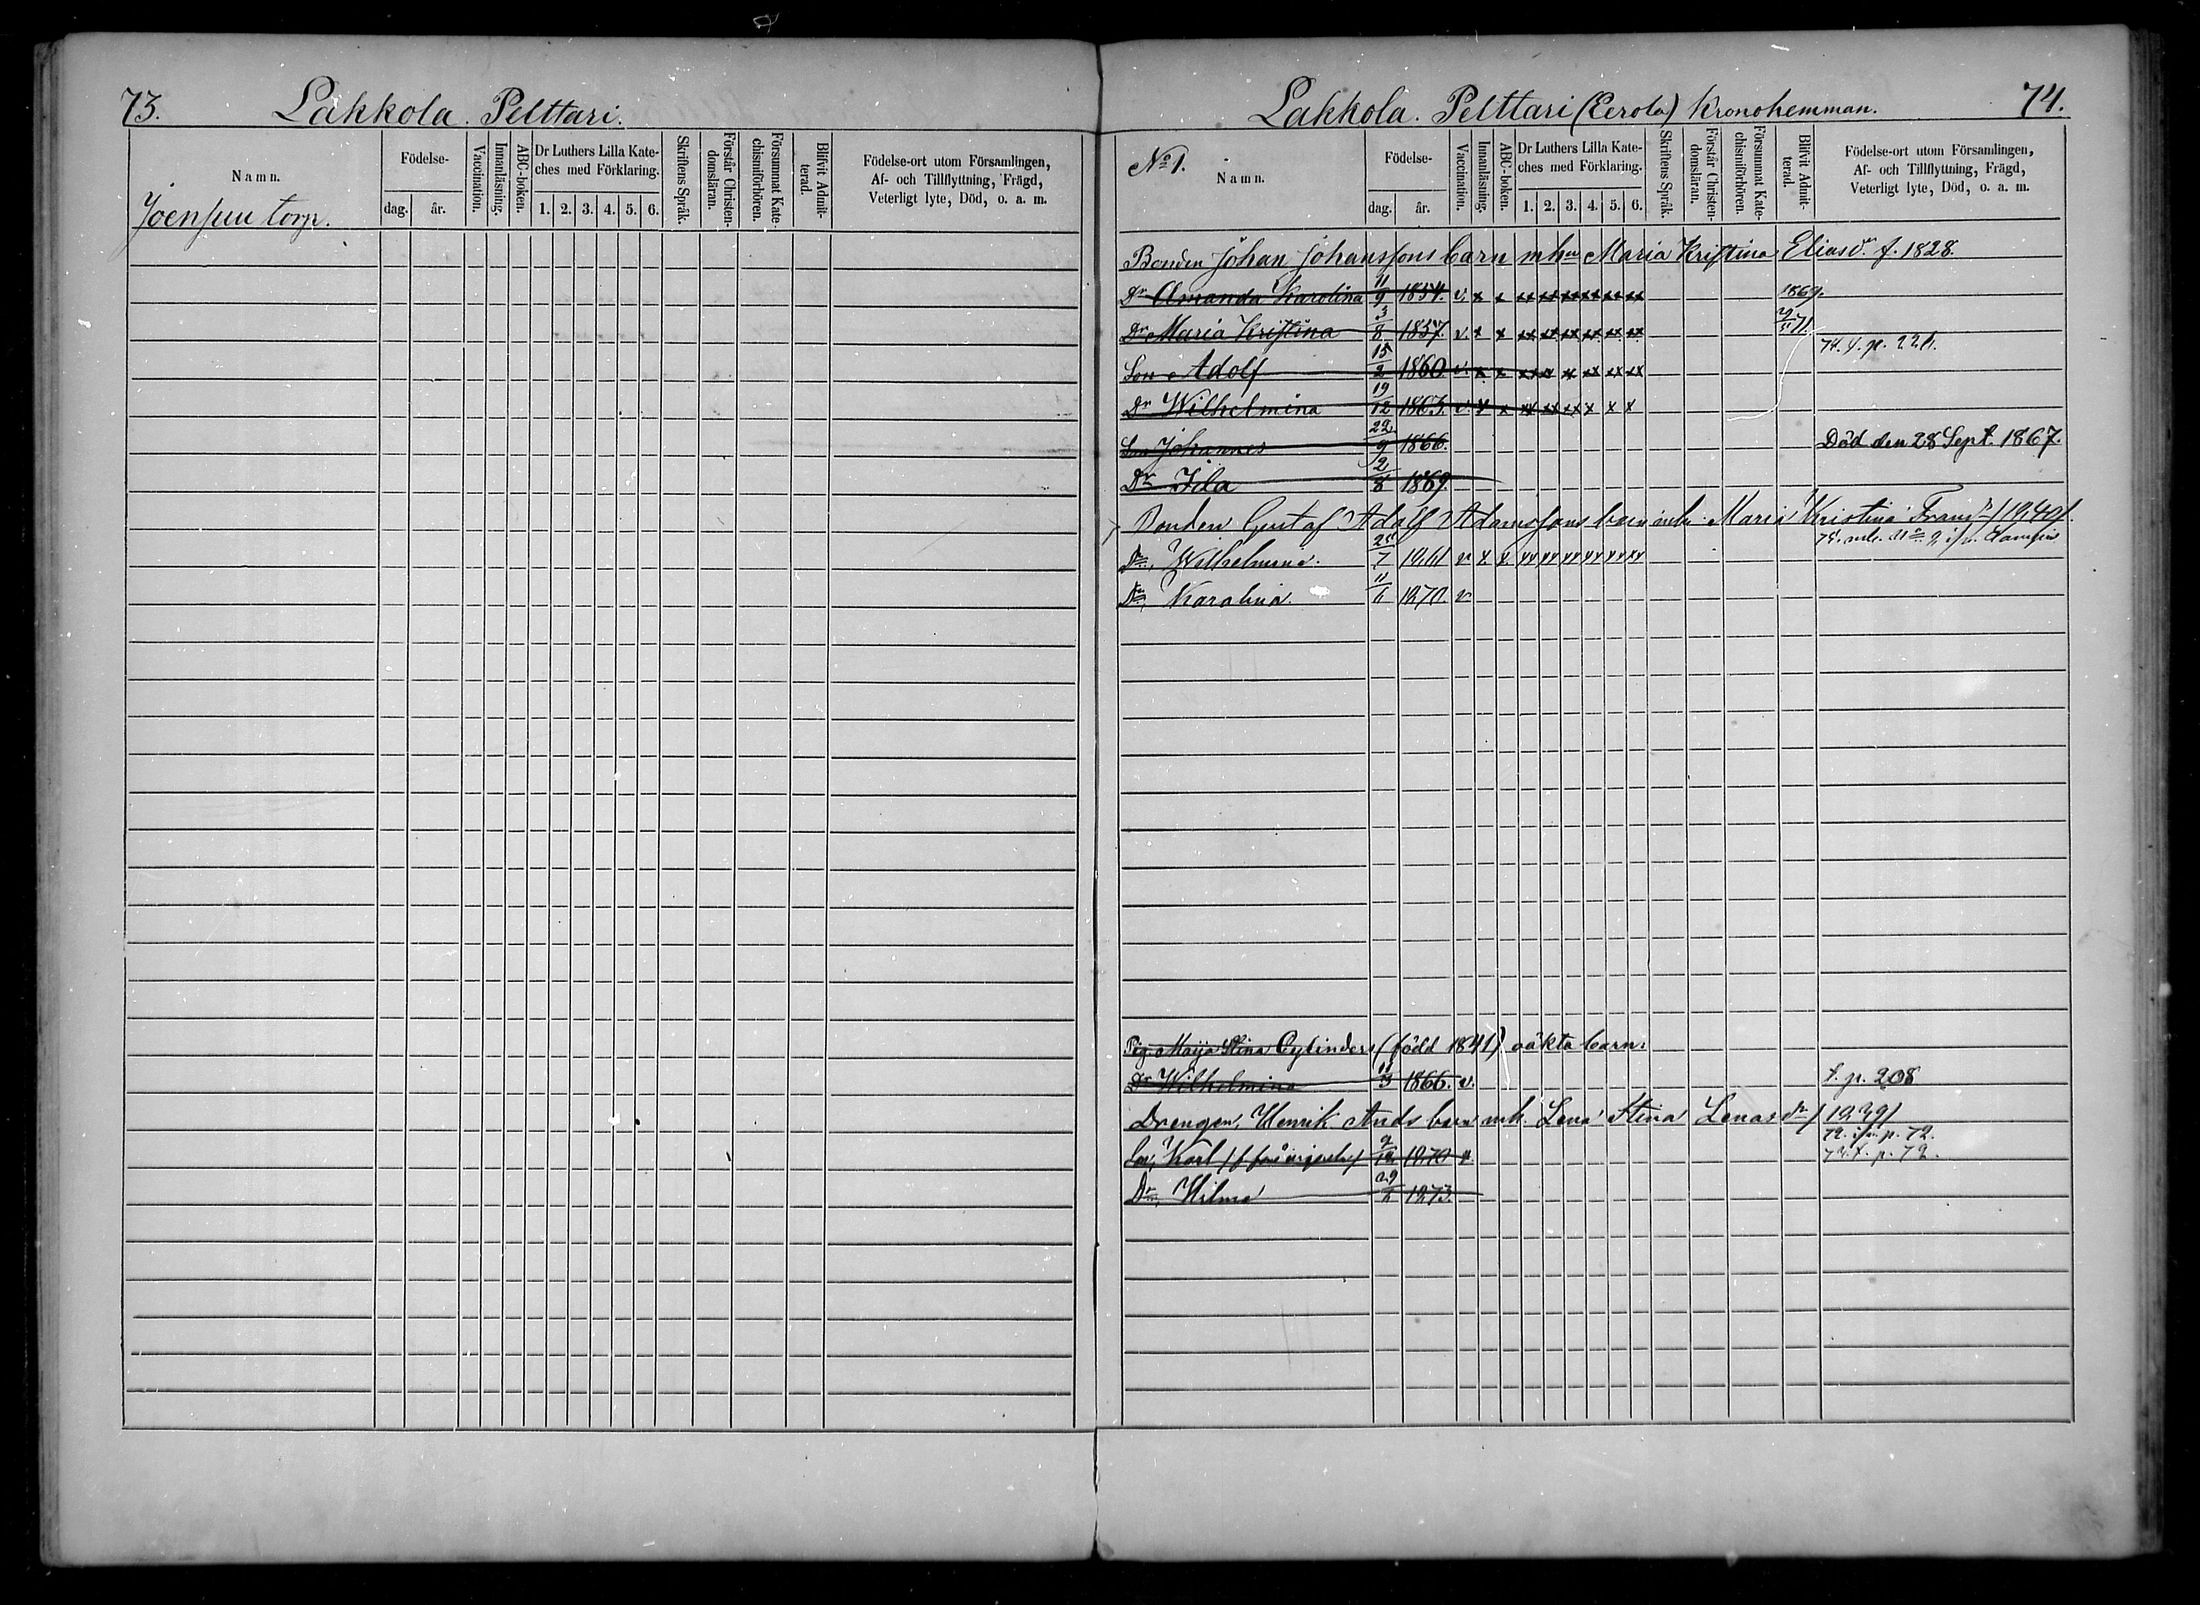 73.
Lakkola. Pelttari.
Namn.
Födelse-
dag. år.
Vaccination.
Innanläsning.
ABC-boken.
Dr Luthers Lilla Kate-
ches med Förklaring.
1. 2. 3. 4. 5. 6.
Skriftens Språk.
Förstår Christen-
domsläran.
Försummat Kate-
chismiförhören.
Blifvit Admit-
terad.
Födelse-ort utom Församlingen,
Af- och Tillflyttning, Frägd,
Veterligt lyte, Död, o. a. m.
Joensuu torp.
Lakkola. Pelttari (Eerola) Kronohemman.
74.
No 1.
Namn.
Födelse-
dag. år.
Vaccination.
Innanläsning.
ABC-boken.
Dr Luthers Lilla Kate-
ches med Förklaring.
1. 2. 3. 4. 5. 6.
Skriftens Språk.
Förstår Christen-
domsläran.
Försummat Kate-
chismiförhören.
Blifvit Admit-
terad.
Födelse-ort utom Församlingen,
Af- och Tillflyttning, Frägd,
Veterligt lyte, Död, o. a. m.
Bonden Johan Johanssons barn mhu Maria Kristina Eliasdr f. 1828.
Dr Amanda Karolina 11/9 1854. v. x x xx xx xx xx xx xx 1869.
Dr Maria Kristina 3/8 1857. v. x x xx xx xx xx xx xx 71.
74. f. p. 221.
Son Adolf 15/2 1860. v. x x xx x x xx xx xx
Dr Wilhelmina 19/12 1863. v. x x xx xx xx x x x
Son Johannes 22/9 1866. Död den 28 Sept. 1867.
Dr Fila 2/8 1869.
Bonden Gustaf Adolf Adamssons barn mh. Maria Kristina
Dr, Wilhelmina. 25/7 v x x xx xx xx xx xx xx
Dr, Karolina. 1870. v
Pig. Maija Stina Cylinders (född 1841) oäkta barn:
Dr Wilhelmina 11/3 1866. v. f. p. 208
Drengen, Henrik Ands barn mh. Lena Stina Lenasdr
72. p. 72.
Son, Karl 1870 f. p. 72.
Dr, Hilma 29/ 1873.